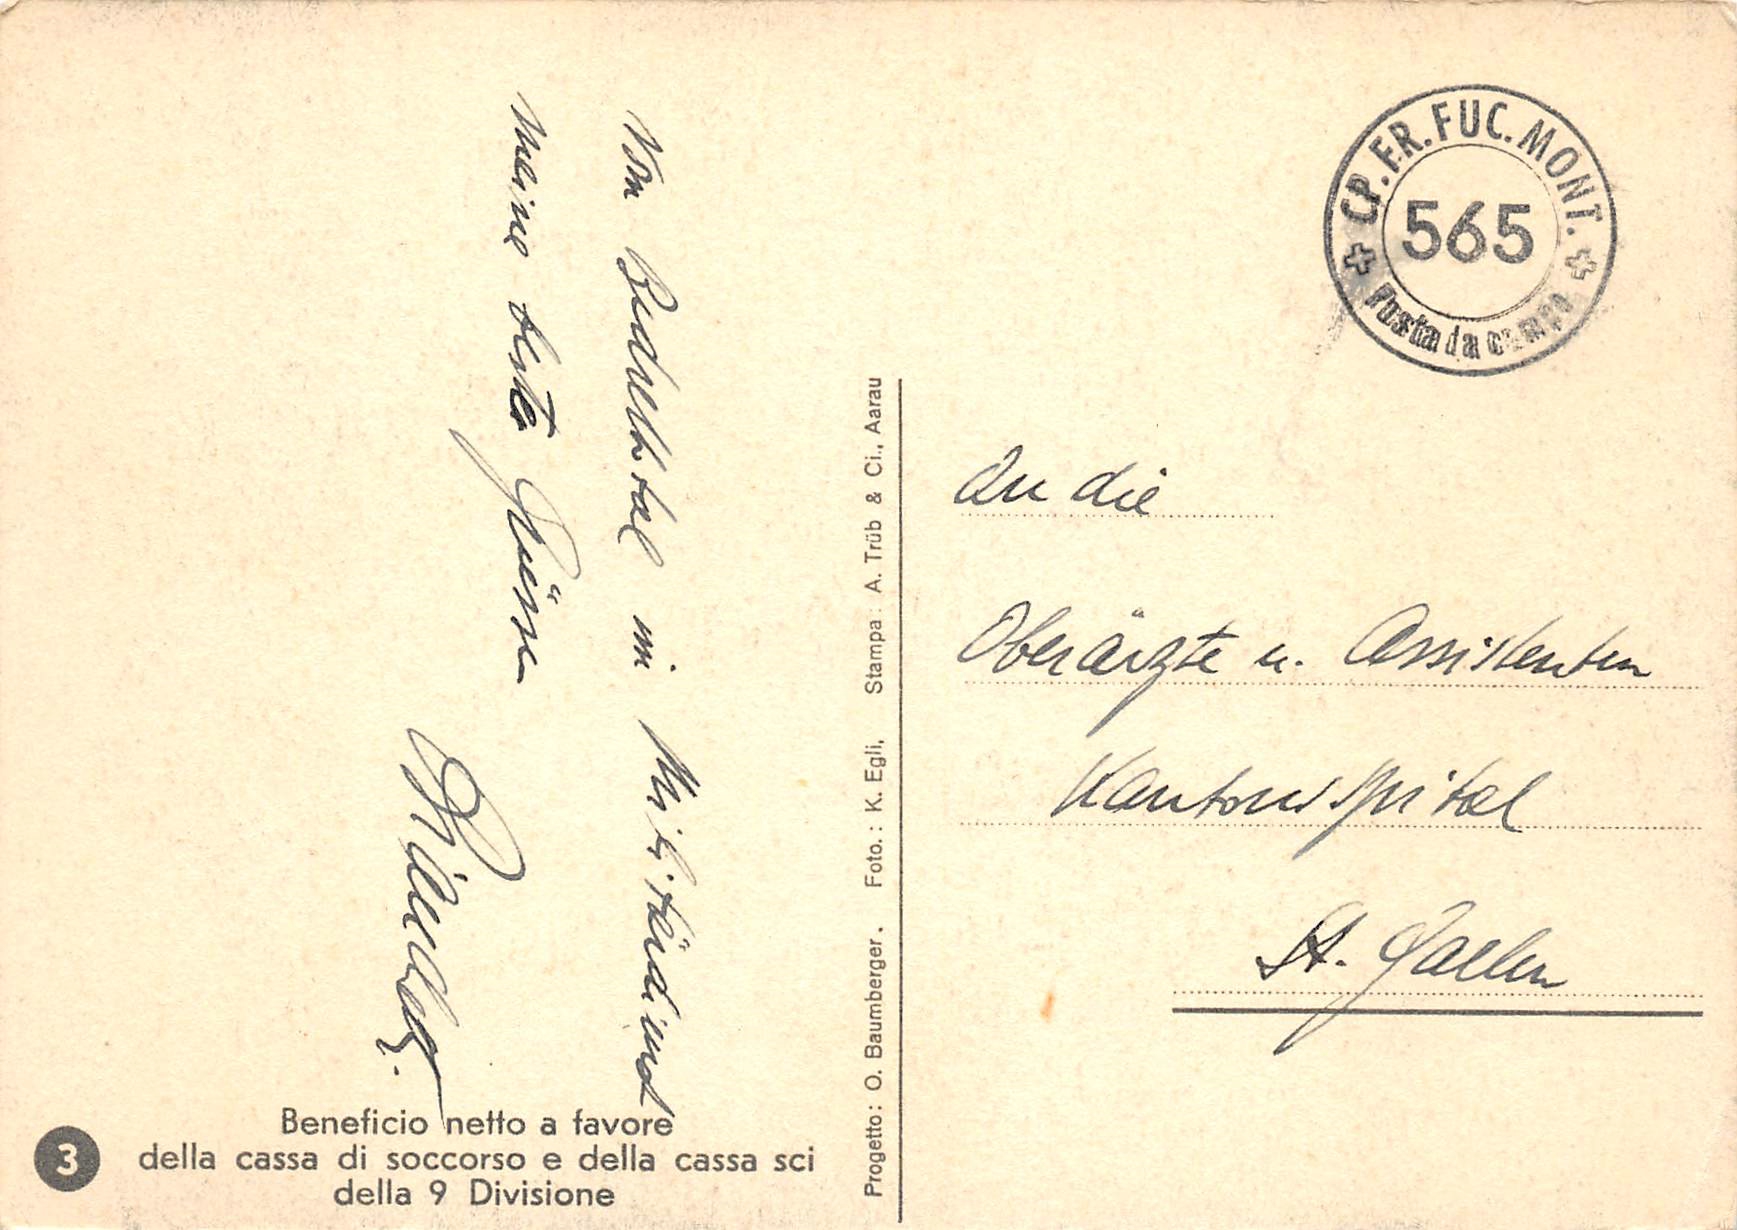 Von Bedrettotal im Militärdienst
meine beste Grüsse
Beneficio netto a favore
della cassa di soccorso e della cassa sci
della 9 Divisione
3
Progetto: O. Baumberger. Foto.: K. Egli, Stampa: A. Trüb & Ci., Aarau
CP. FR. FUC. MONT.
565
Posta da campo
An die
Oberärzte u. Assistenten
Kantonsspital
St. Gallen